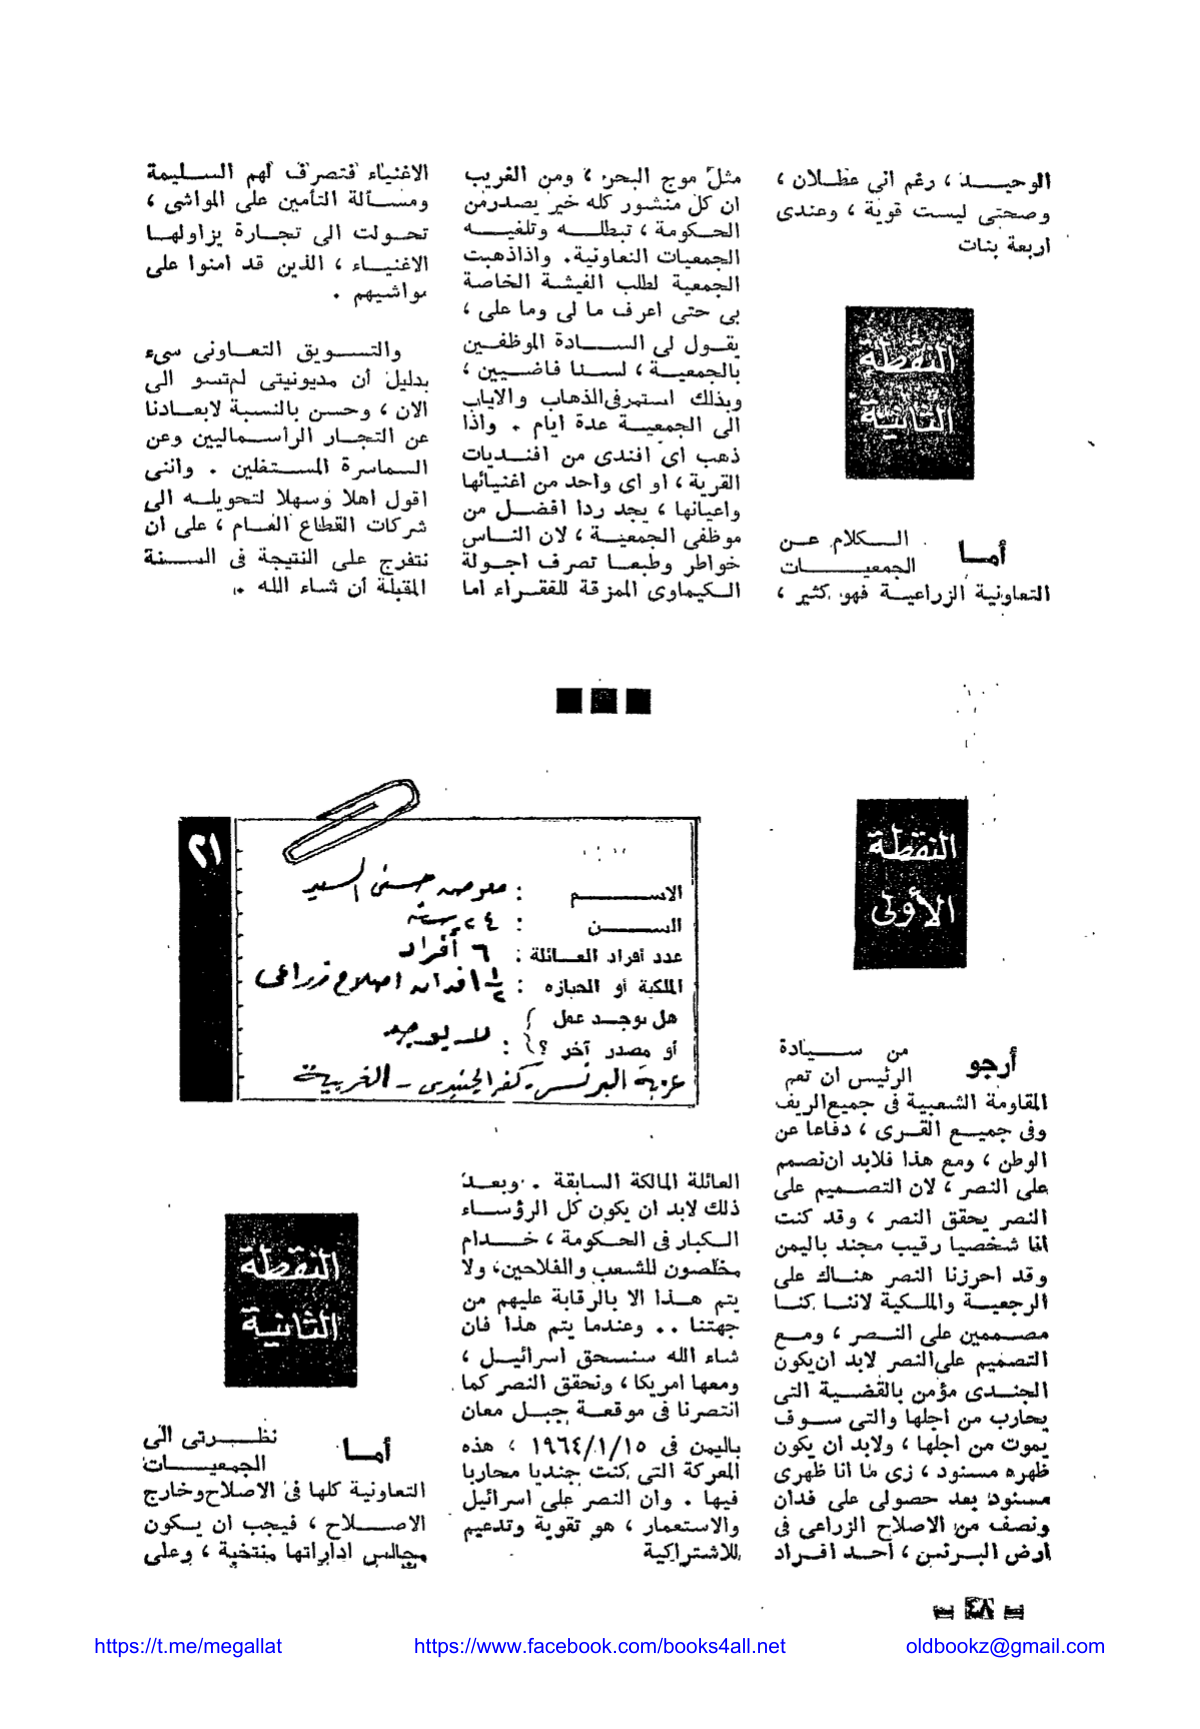 الوحيـــد ، رغم انى عطـلان ،
وصحتى ليست قوية ، وعندى
اربعة بنات
النقطة
الثانية
أمـا الـــكلام عـن
الجمعيــــــات
التعاونية الزراعيــة فهو كثير ،
مثل موج البحر ، ومن الغريب
ان كل منشور كله خير يصدرمن
الحـكومة ، تبطلــه وتلغيــه
الجمعيات التعاونية. واذاذهبت
الجمعية لطلب الفيشة الخاصة
بى حتى اعرف ما لى وما على ،
يقـول لى الســـادة الموظفـين
بالجمعيـة ، لسـنا فاضيين ،
وبذلك استمرفىالذهاب والاياب
الى الجمعيــة عدة ايام . واذا
ذهب اى افندى من افنـديات
القرية ، او اى واحد من اغنيائها
واعيانها ، يجد ردا افضـل من
موظفى الجمعيـة ، لان النـاس
خواطر وطبعـا تصرف اجـولة
الـكيماوى الممزقة للفقـراء اما
الاغنياء فتصرف لهم السـليمة
ومسـألة التأمين على المواشى ،
تحـولت الى تجـارة يزاولهـا
الاغنيـاء ، الذين قد امنوا على
مواشيهم .
والتسـويق التعـاونى سىء
بدليل أن مديونيتى لم‌تسو الى
الان ، وحسن بالنسبة لابعـادنا
عن التجـار الرأسـماليين وعن
السـماسرة المسـتغلين . واننى
اقول اهلا وسهلا لتحويلـه الى
شركات القطاع العـام ، على ان
نتفرج على النتيجة فى السـنة
المقبلة أن شاء الله .
٢١
الاســــــم : معوض حسنى السيد
الســــــن : ٢٤ سنة
عدد أفراد العـائلة : ٦ أفراد
الملكية أو الحيازه : ١ ١/٢ فدان اصلاح زراعى
هل يوجـد عمل
أو مصدر آخر ؟ : لا يوجد
عزبة البرنس - كفر الجنيدى - الغربية
النقطة
الأولى
أرجو من ســيادة
الرئيس ان تعم
المقاومة الشعبية فى جميع‌الريف
وفى جميـع القـرى ، دفاعا عن
الوطن ، ومع هذا فلابد ان‌نصمم
على النصر ، لان التصـميم على
النصر يحقق النصر ، وقد كنت
انا شخصيا رقيب مجند باليمن
وقد احرزنا النصر هنـاك على
الرجعيـة والملـكية لاننـا كنـا
مصـممين على النـصر ، ومـع
التصميم على‌النصر لابد ان‌يكون
الجنـدى مؤمن بالقضـية التى
يحارب من اجلها والتى سـوف
يموت من اجلها ، ولابد ان يكون
ظهره مسنود ، زى ما انا ظهرى
مسنود بعد حصولى على فدان
ونصف من الاصلاح الزراعى فى
أرض البـرنس ، احـد افـراد
العائلة المالكة السابقة . وبعـد
ذلك لابد ان يكون كل الرؤسـاء
الـكبار فى الحـكومة ، خـدام
مخلصون للشعب والفلاحين، ولا
يتم هـذا الا بالرقابة عليهم من
جهتنا .. وعندما يتم هذا فان
شاء الله سنسحق اسرائيـل ،
ومعها امريكا ، ونحقق النصر كما
انتصرنا فى موقعـة جبـل معان
باليمن فى ١٩٦٤/١/١٥ ، هذه
المعركة التى كنت جنديا محاربا
فيها . وان النصر على اسرائيل
والاستعمار ، هو تقوية وتدعيم
للاشتراكية
النقطة
الثانية
أمـا نظـرتى الى
الجمعيـــــات
التعاونية كلها فى الاصلاح‌وخارج
الاصـلاح ، فيجب ان يـكون
مجالس اداراتها منتخبة ، وعلى
٤٨
https://t.me/megallat https://www.facebook.com/books4all.net oldbookz@gmail.com